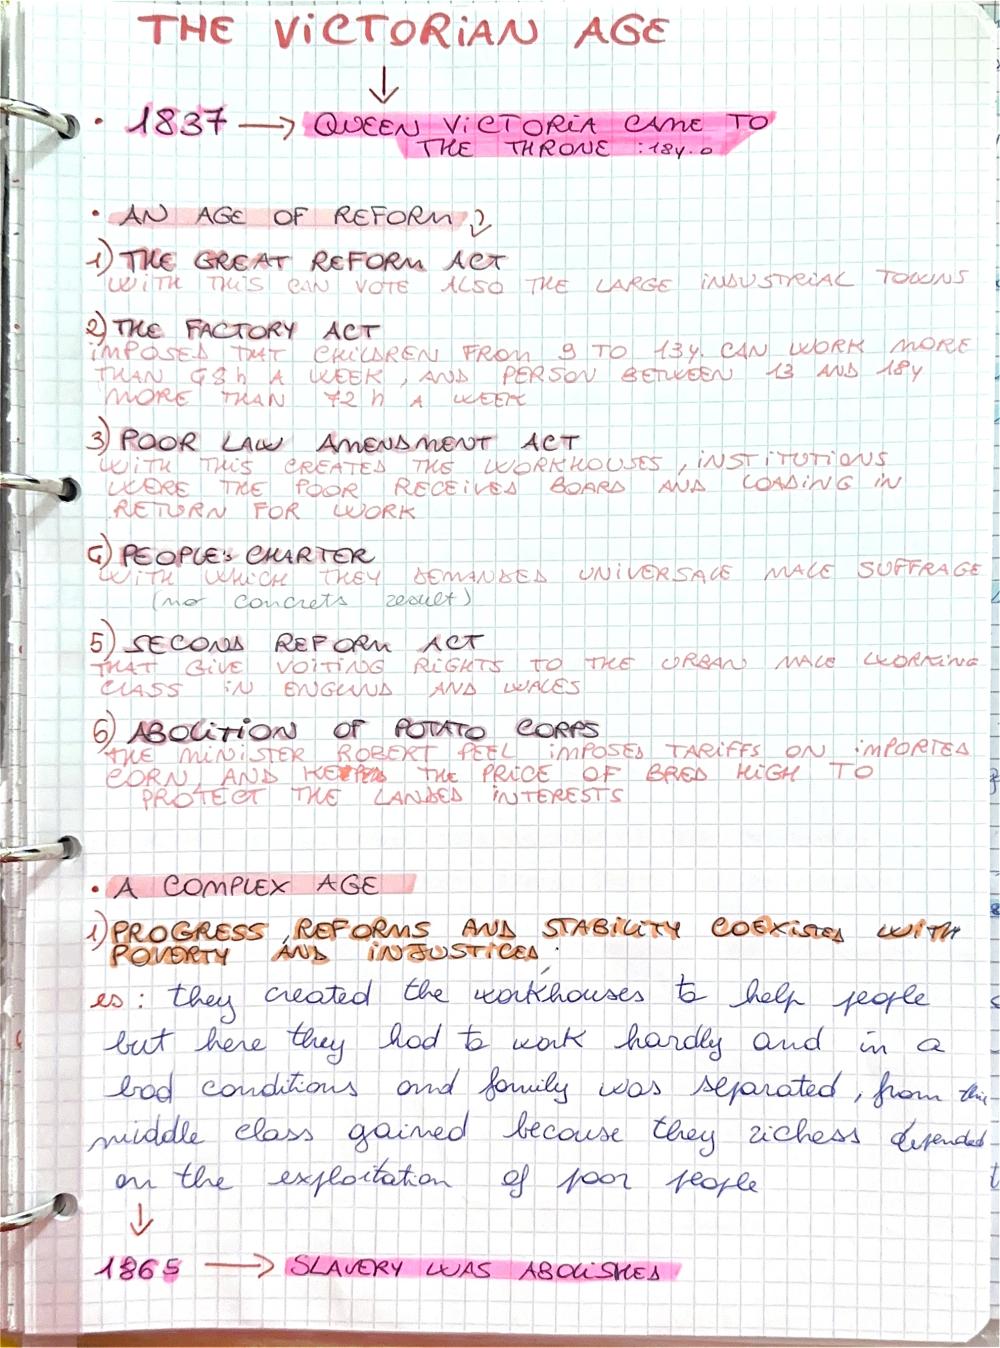 THE VICTORIAN AGE
• 1837 → QUEEN VICTORIA CAME TO
THE THRONE : 18y.o
• AN AGE OF REFORM
1) THE GREAT REFORM ACT
WITH THIS CAN VOTE ALSO THE LARGE INDUSTRIAL TOWNS
2) THE FACTORY ACT
IMPOSED THAT CHILDREN FROM 9 TO 13y. CAN WORK MORE
THAN 48h A WEEK, AND PERSON BETWEEN 13 AND 18y
MORE THAN 72 h A WEEK
3) POOR LAW AMENDMENT ACT
WITH THIS CREATED THE WORKHOUSES, INSTITUTIONS
WERE THE POOR RECEIVED BOARD AND LOADING IN
RETURN FOR WORK
4) PEOPLE'S CHARTER
WITH WHICH THEY DEMANDED UNIVERSALE MALE SUFFRAGE
(no concrets result)
5) SECOND REFORM ACT
THAT GIVE VOITING RIGHTS TO THE URBAN MALE WORKING
CLASS IN ENGLAND AND WALES
6) ABOLITION OF POTATO CORPS
THE MINISTER ROBERT PEEL IMPOSED TARIFFS ON IMPORTED
CORN, AND THE PRICE OF BRED HIGH TO
PROTECT THE LANDED INTERESTS
• A COMPLEX AGE
1) PROGRESS, REFORMS AND STABILITY COEXISTED WITH
POVERTY AND INJUSTICES
es: they created the workhouses to help people
but here they had to work hardly and in a
bad conditions and family was separated, from this
middle class gained because they richess depended
on the exploitation of poor people
1865 → SLAVERY WAS ABOLISHED